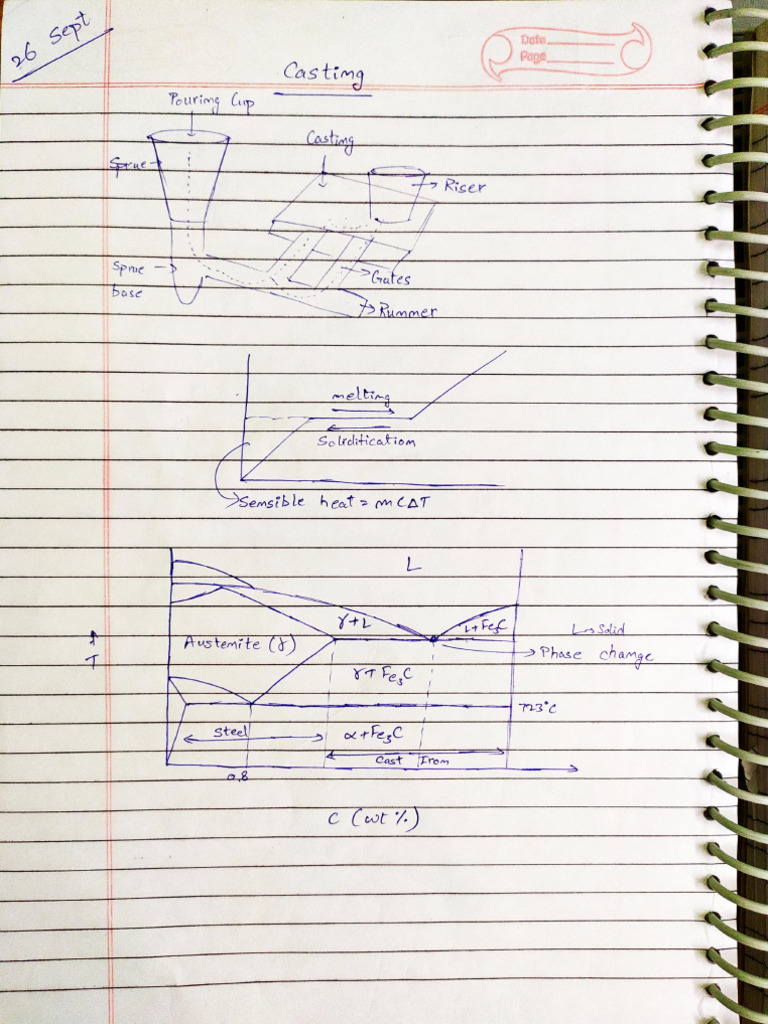 26 Sept
Date
Page
Casting
Pouring Cup
Casting
Sprue
Riser
Sprue
base
Gates
Runner
melting
Solidification
Sensible heat = mCΔT
L
γ+L
L+Fe₃C
L→Solid
Austenite (γ)
Phase change
↑
T
γ+Fe₃C
723°C
Steel
α+Fe₃C
Cast Iron
0.8
C (wt %)